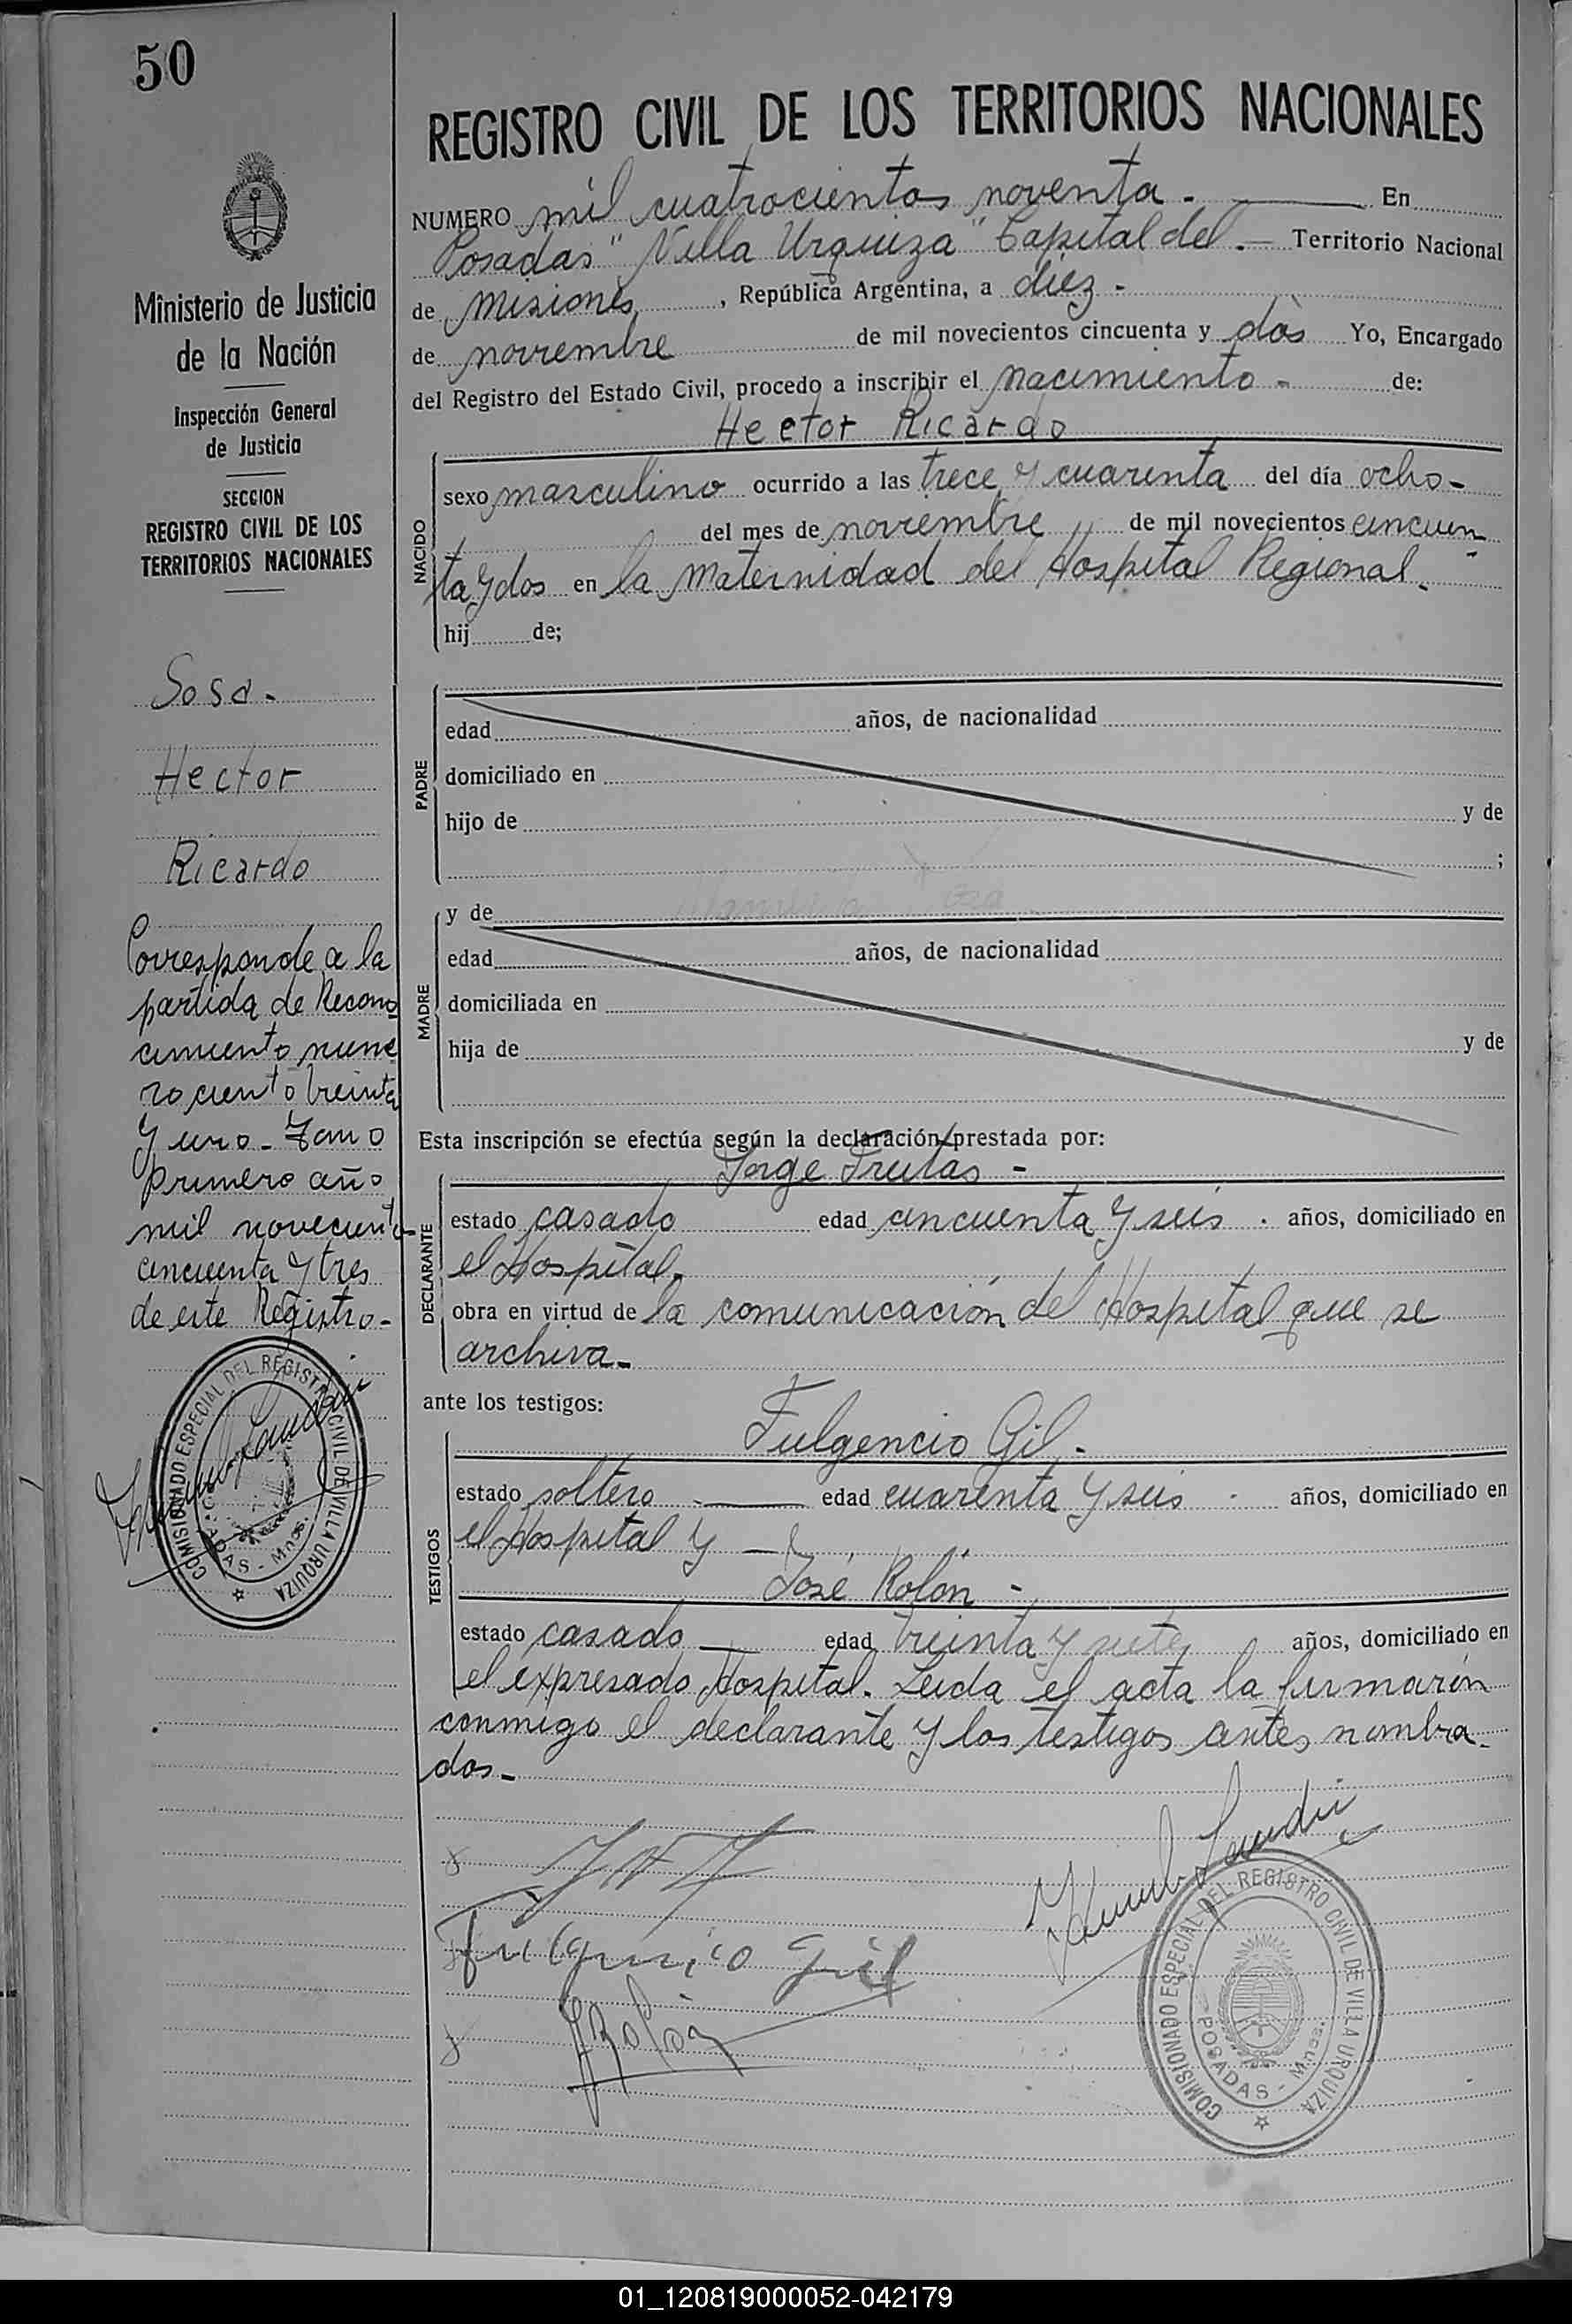 50
Ministerio de Justicia
de la Nación
Inspección General
de Justicia
SECCION
REGISTRO CIVIL DE LOS
TERRITORIOS NACIONALES
Sosa-
Hector
Ricardo
Corresponde a la
partida de Recono
cimiento núme
ro ciento treinta
y uno- Tomo
primero año
mil novecientos
cincuenta y tres
de este Registro-
COMISIONADO ESPECIAL DEL REGISTRO CIVIL DE VILLA URQUIZA
POSADAS - Mnes.
REGISTRO CIVIL DE LOS TERRITORIOS NACIONALES
NUMERO mil cuatrocientos noventa.- En
Posadas "Villa Urquiza" Capital del.- Territorio Nacional
de Misiones, República Argentina, a diez-
de noviembre de mil novecientos cincuenta y dos Yo, Encargado
del Registro del Estado Civil, procedo a inscribir el nacimiento- de:
Hector Ricardo
NACIDO
sexo masculino ocurrido a las trece y cuarenta del día ocho-
del mes de noviembre de mil novecientos cincuen
ta y dos en la Maternidad del Hospital Regional.-
hij de;
PADRE
edad años, de nacionalidad
domiciliado en
hijo de y de
;
MADRE
y de
edad años, de nacionalidad
domiciliada en
hija de y de
Esta inscripción se efectúa según la declaración prestada por:
Jorge Freitas-
DECLARANTE
estado casado edad cincuenta y seis. años, domiciliado en
el Hospital.
obra en virtud de la comunicación del Hospital que se
archiva-
ante los testigos:
Fulgencio Gil-
TESTIGOS
estado soltero - edad cuarenta y seis - años, domiciliado en
el Hospital y -
José Rolón-
estado casado - edad treinta y siete años, domiciliado en
el expresado Hospital. Leída el acta la firmarón
conmigo el declarante y los testigos antes nombra-
dos-
Fulgencio Gil
JRolón
COMISIONADO ESPECIAL DEL REGISTRO CIVIL DE VILLA URQUIZA
POSADAS - Mnes.
01_120819000052-042179